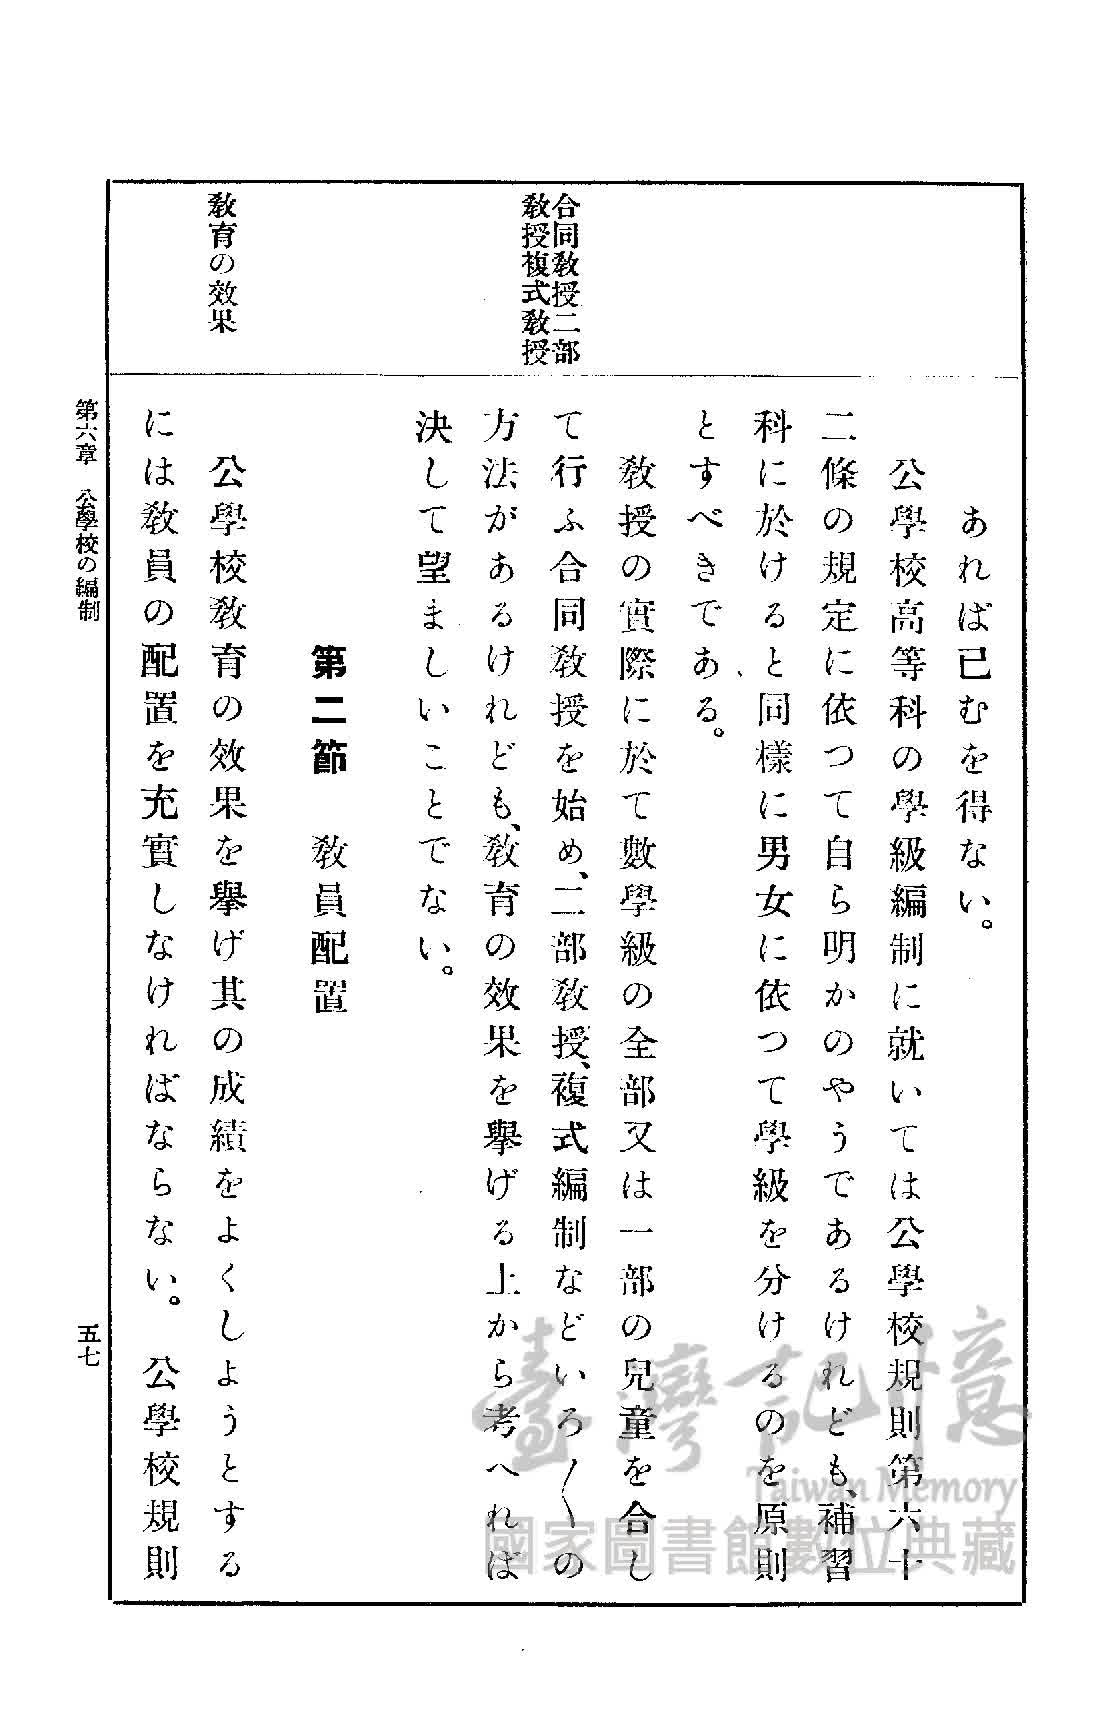 合同教授二部
教授複式教授
教育の效果
あれば已むを得ない。
公學校高等科の學級編制に就いては公學校規則第六十
二條の規定に依つて自ら明かのやうであるけれども、補習
科に於けると同樣に男女に依つて學級を分けるのを原則
とすべきである。
教授の實際に於て數學級の全部又は一部の兒童を合し
て行ふ合同教授を始め、二部教授、複式編制などいろ〳〵の
方法があるけれども、教育の效果を擧げる上から考へれば
決して望ましいことでない。
第二節　教員配置
公學校教育の效果を擧げ其の成績をよくしようとする
には教員の配置を充實しなければならない。公學校規則
第六章　公學校の編制
五七
臺灣記憶
Taiwan Memory
國家圖書館數位典藏